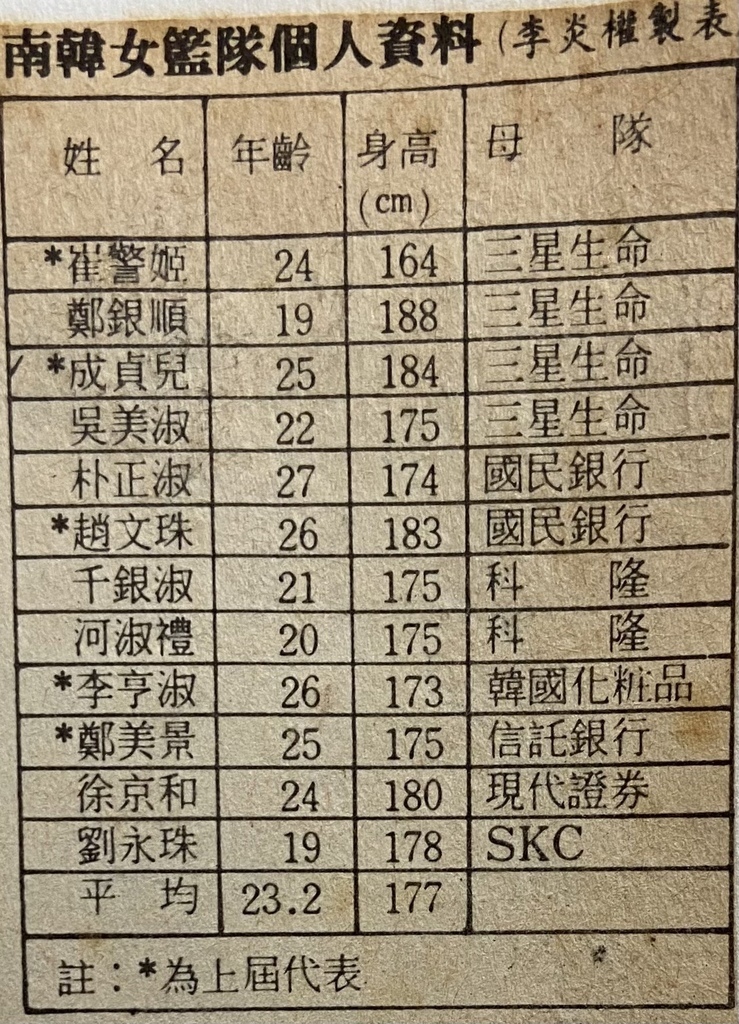 南韓女籃隊個人資料(李炎權製表
姓 名 年齡 身高(cm) 母 隊
*崔警姬 24 164 三星生命
鄭銀順 19 188 三星生命
*成貞兒 25 184 三星生命
吳美淑 22 175 三星生命
朴正淑 27 174 國民銀行
*趙文珠 26 183 國民銀行
千銀淑 21 175 科 隆
河淑禮 20 175 科 隆
*李亨淑 26 173 韓國化粧品
*鄭美景 25 175 信託銀行
徐京和 24 180 現代證券
劉永珠 19 178 SKC
平 均 23.2 177
註：*為上屆代表